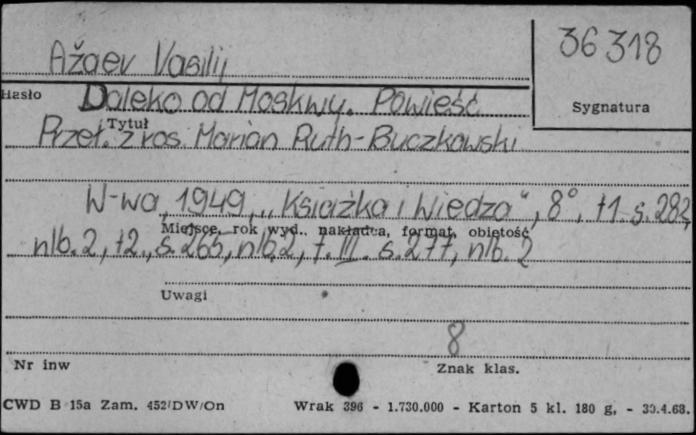 36318
Ažaev Vasilij
Hasło
Sygnatura
Daleko od Moskwy. Powieść
Tytuł
Przeł. z ros. Marian Ruth-Buczkowski
W-wa, 1949, „Książka i Wiedza", 8°, t1. s. 282,
Miejsce, rok wyd., nakładca, format, objętość
nlb. 2, t2., s. 265, nlb. 2, t. III. s. 277, nlb. 2
Uwagi
8
Nr inw
Znak klas.
CWD B 15a Zam. 452/DW/On Wrak 396 - 1.730.000 - Karton 5 kl. 180 g. - 30.4.68.